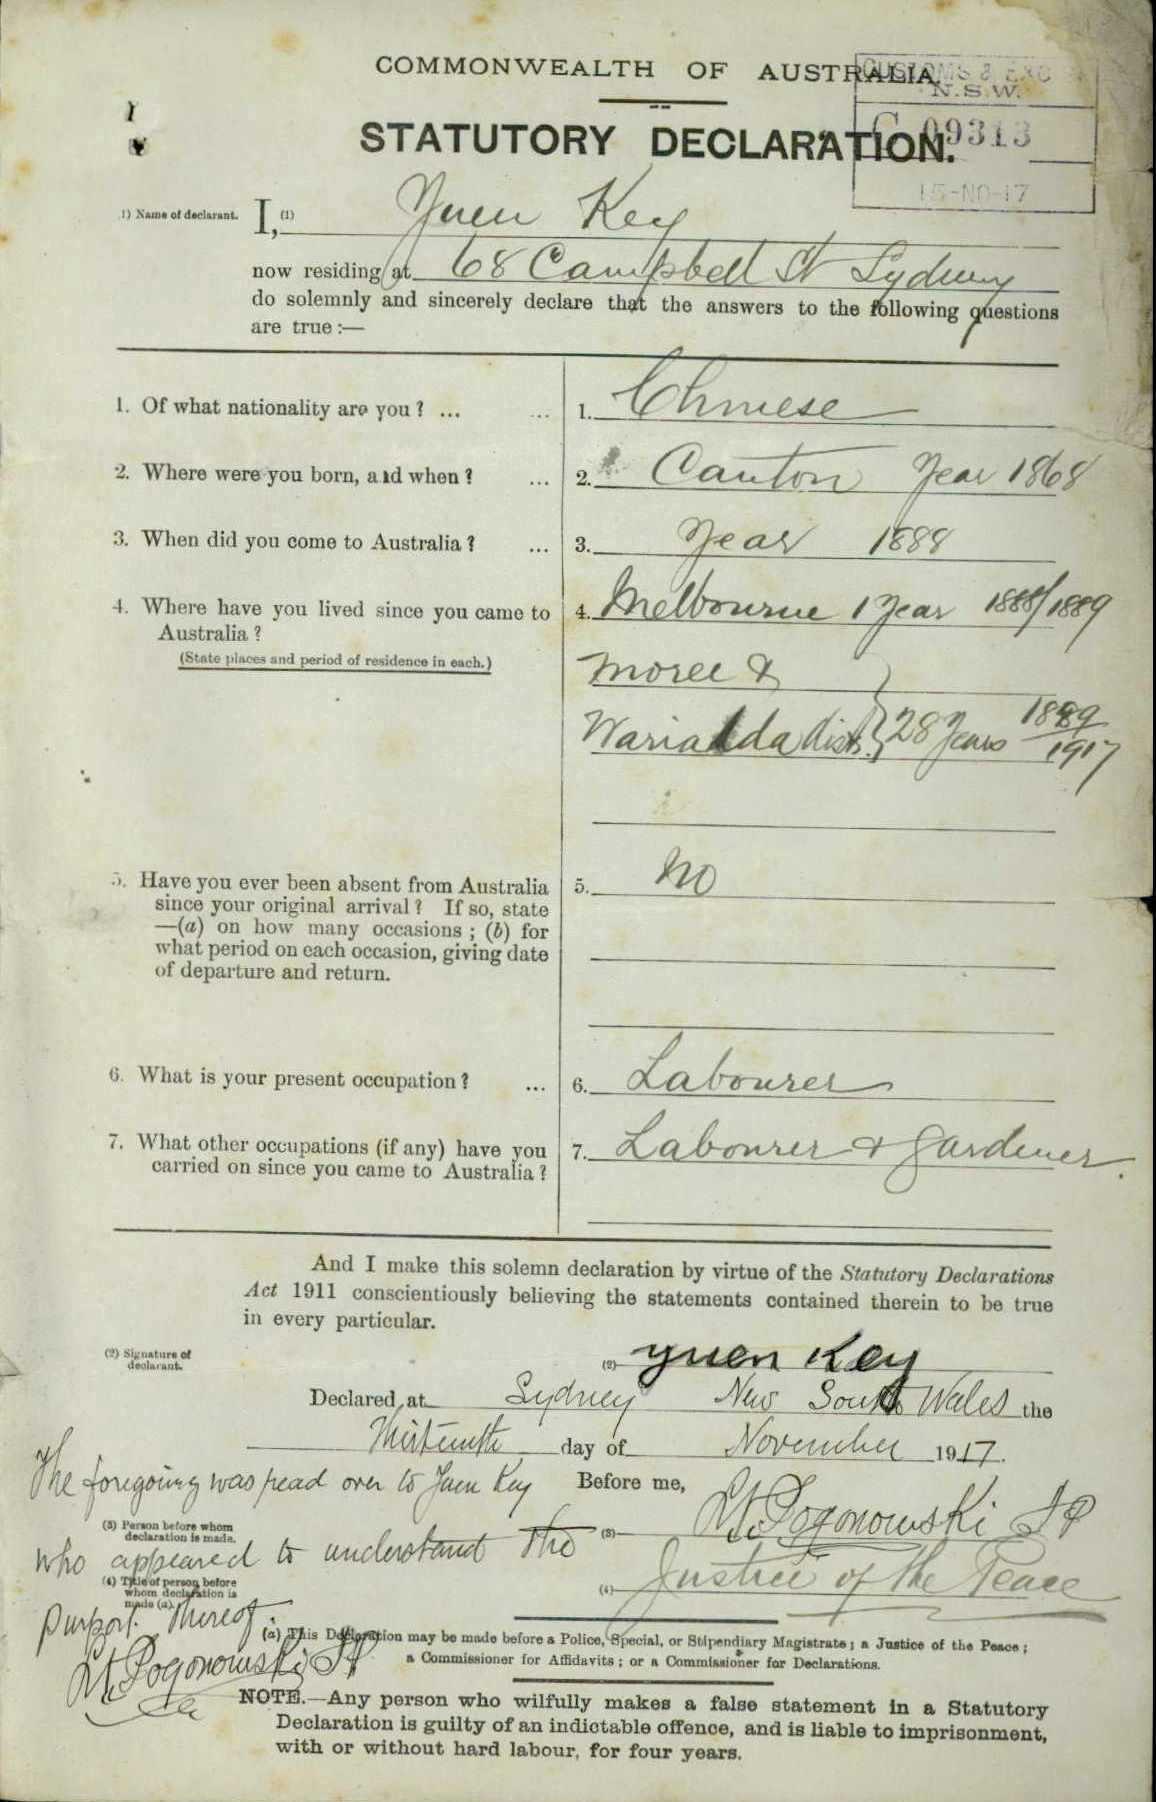 COMMONWEALTH OF AUSTRALIA.
CUSTOMS & EXC
N.S.W.
C 09313
15-NO-17
STATUTORY DECLARATION.
1) Name of declarant. I, (1) Yuen Key
now residing at 68 Campbell St Sydney
do solemnly and sincerely declare that the answers to the following questions
are true :—
1. Of what nationality are you ? ... ... 1. Chinese
2. Where were you born, and when ? ... 2. Canton Year 1868
3. When did you come to Australia ? ... 3. Year 1888
4. Where have you lived since you came to 4. Melbourne 1 Year 1888/1889
Australia ?
(State places and period of residence in each.) Moree &
Warialda dist. } 28 Years 1889
1917
5. Have you ever been absent from Australia 5. No
since your original arrival ? If so, state
—(a) on how many occasions ; (b) for
what period on each occasion, giving date
of departure and return.
6. What is your present occupation ? ... 6. Labourer
7. What other occupations (if any) have you 7. Labourer & Gardener.
carried on since you came to Australia ?
And I make this solemn declaration by virtue of the Statutory Declarations
Act 1911 conscientiously believing the statements contained therein to be true
in every particular.
(2) Signature of
declarant. (2) yuen Key
Declared at Sydney New South Wales the
Thirteenth day of November 1917.
The foregoing was read over to Yuen Key Before me,
(3) Person before whom
declaration is made. (3) Pogonowski JP
who appeared to understand the
(4) Title of person before
whom declaration is
made (a). (4) Justice of the Peace
purport thereof.
Pogonowski JP
(a) This Declaration may be made before a Police, Special, or Stipendiary Magistrate ; a Justice of the Peace ;
a Commissioner for Affidavits ; or a Commissioner for Declarations.
NOTE.—Any person who wilfully makes a false statement in a Statutory
Declaration is guilty of an indictable offence, and is liable to imprisonment,
with or without hard labour, for four years.